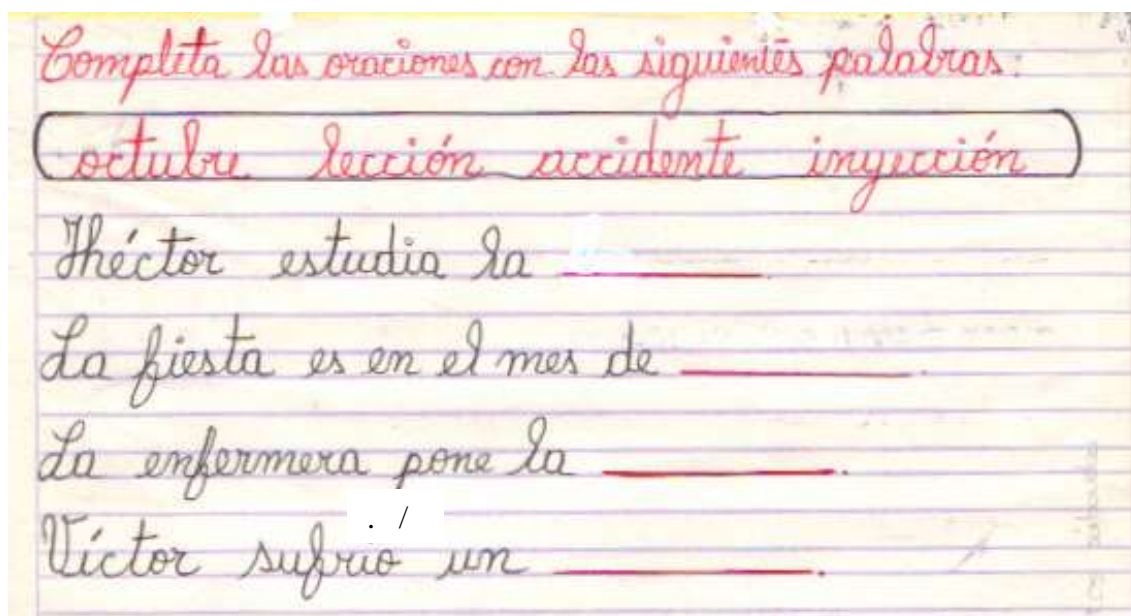 Completa las oraciones con las siguientes palabras:
octubre lección accidente inyección
Héctor estudia la ________.
La fiesta es en el mes de ________.
La enfermera pone la ________.
Víctor sufrió un ________.